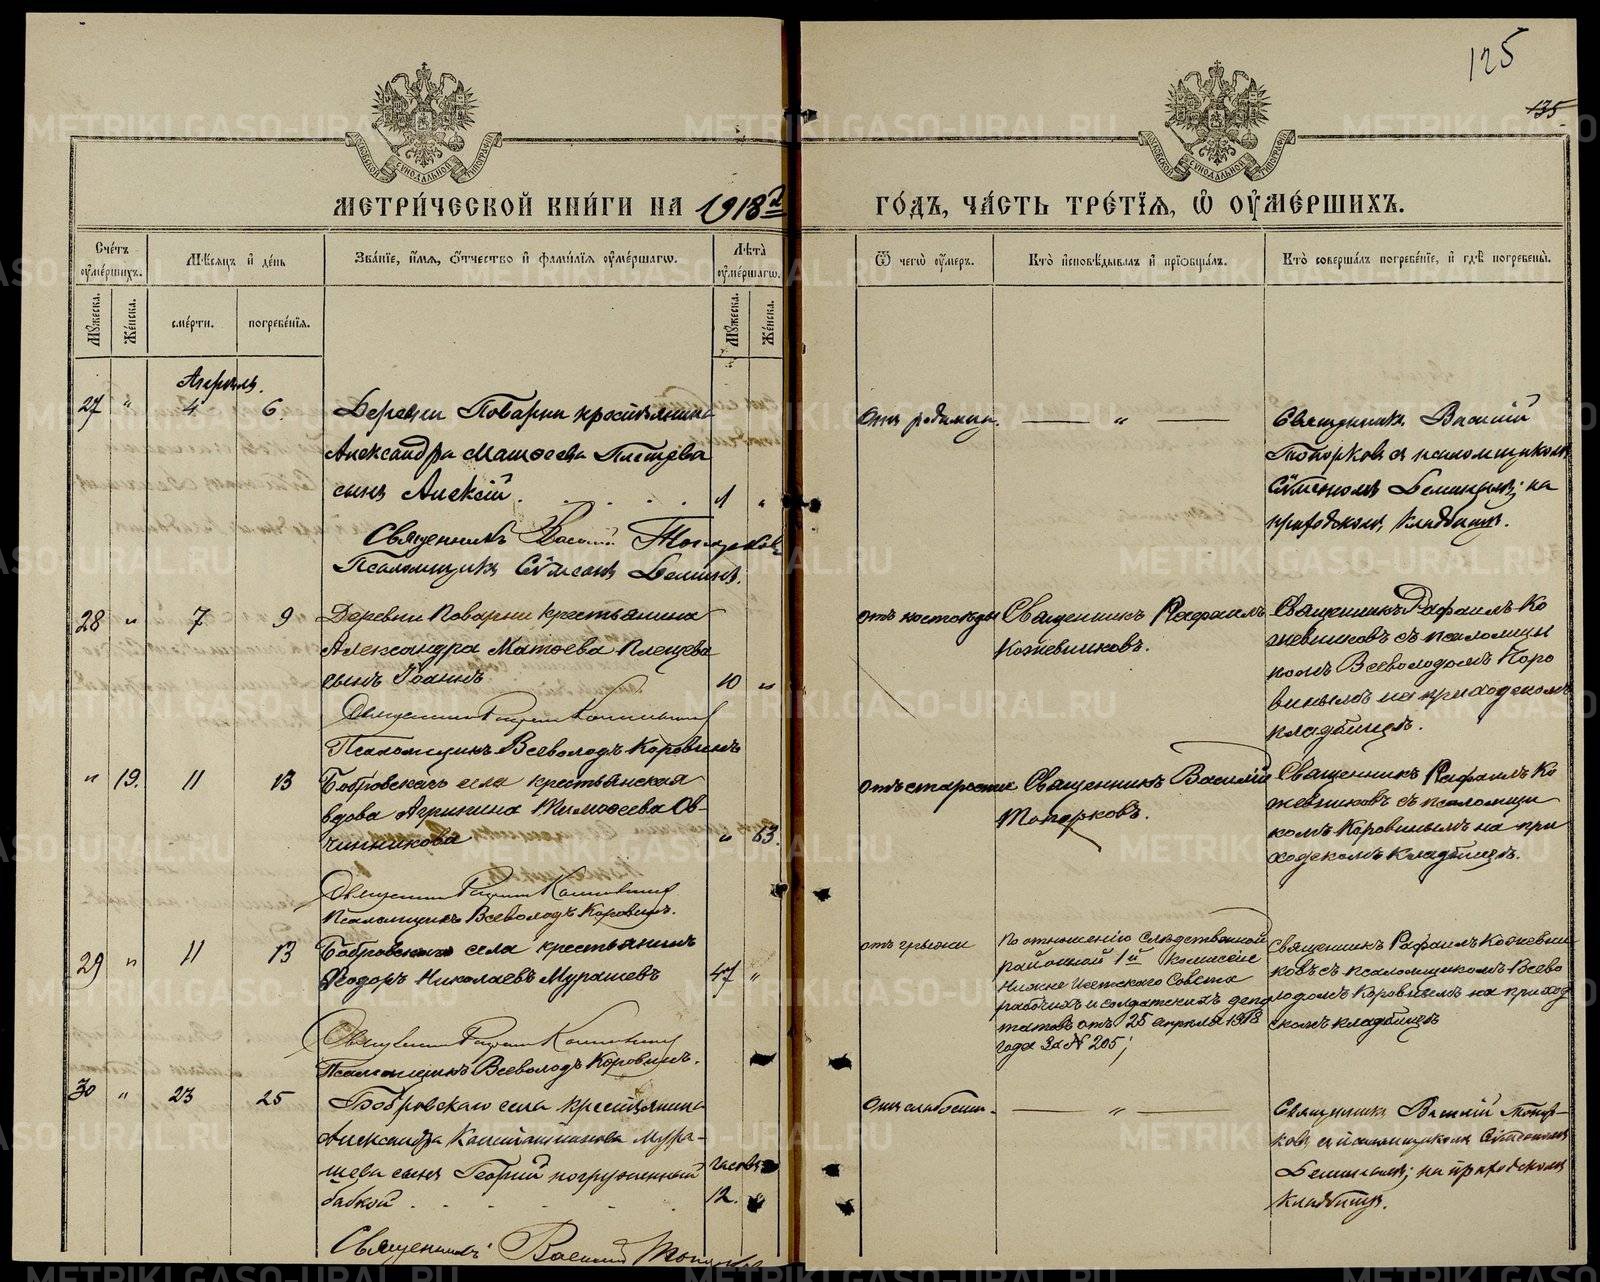 125
135
МЕТРИ́ЧЕСКОЙ КНИ́ГИ НА 1918й ГО́ДЪ, ЧА́СТЬ ТРЕ́ТІЯ, Ѡ ОУМЕ́РШИХЪ.
МОСКОВСКОЙ СѴНОДАЛЬНОЙ ТИПОГРАФІИ
МОСКОВСКОЙ СѴНОДАЛЬНОЙ ТИПОГРАФІИ
Сче́тъ оуме́ршихъ.
Мѣсяцъ и де́нь
Зва́нїе, и́мя, о́тчество и фами́лїя оуме́ршагѡ.
Лѣта̀ оуме́ршагѡ.
Ѿ чегѡ̀ оу́меръ.
Кто̀ исповѣ́дывалъ и прїобща́лъ.
Кто̀ соверша́лъ погребе́нїе, и гдѣ̀ погребены̀.
Му́жеска.
Же́нска.
сме́рти.
погребе́нїя.
Му́жеска.
Же́нска.
Апрѣль.
27 " 4 6
Деревни Поварни крестьянина
Александра Матѳеева Плещева
сынъ Алексій. 1 "
Священникъ Василій Топорковъ
Псаломщикъ Сѵмеонъ
От родимца.
— " —
Священникъ Василій
Топорковъ съ псаломщикомъ
Сѵмеономъ на
приходскомъ кладбищѣ.
28 " 7 9
Деревни Поварни крестьянина
Александра Матѳева Плещева
сынъ Іоаннъ. 10 "
Священникъ Рафаилъ Кожевниковъ
Псаломщикъ Всеволодъ Коровинъ
отъ костоѣды
Священникъ Рафаилъ
Кожевниковъ.
Священникъ Рафаилъ Ко
жевниковъ съ псаломщи
комъ Всеволодомъ Коро
винымъ на приходскомъ
кладбищѣ.
" 19. 11 13
Бобровскаго села крестьянская
вдова Агрипина Тимоѳеева Ов-
чинникова " 63.
Священникъ Рафаилъ Кожевниковъ
Псаломщикъ Всеволодъ Коровинъ.
отъ старости
Священникъ Василій
Топорковъ.
Священникъ Рафаилъ Ко
жевниковъ съ псаломщи
комъ Коровинымъ на при
ходскомъ кладбищѣ.
29 " 11 13
Бобровскаго села крестьянинъ
Ѳеодоръ Николаевъ Мурашевъ 47 "
Священникъ Рафаилъ Кожевниковъ
Псаломщикъ Всеволодъ Коровинъ.
отъ грыжи
По отношенію Слѣдственной
районной 1й комиссіи
Нижне Исетскаго Совѣта
рабочихъ и солдатскихъ депу
татовъ отъ 25 апрѣля 1918
года за № 205;
Священникъ Рафаилъ Кожевни
ковъ съ псаломщикомъ Всево
лодомъ Коровинымъ на приход
скомъ кладбищѣ
30 " 23 25
Бобровскаго села крестьянина
Александра Константинова Мура-
шева сынъ Георгій погруженный
бабкой . часовъ 12.
Священникъ Василій Топорковъ
От слабости.
— " —
Священникъ Василій Топор-
ковъ съ псаломщикомъ Сѵмеономъ
на приходскомъ
кладбищѣ.
METRIKI.GASO-URAL.RU